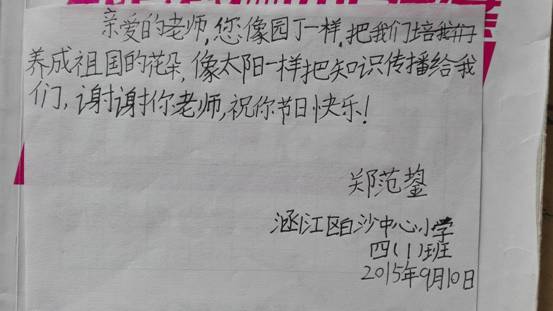 亲爱的老师,您像园丁一样,把我们培
养成祖国的花朵,像太阳一样把知识传播给我
们,谢谢你老师,祝你节日快乐!
郑范鋆
涵江区白沙中心小学
四(1)班
2015年9月10日